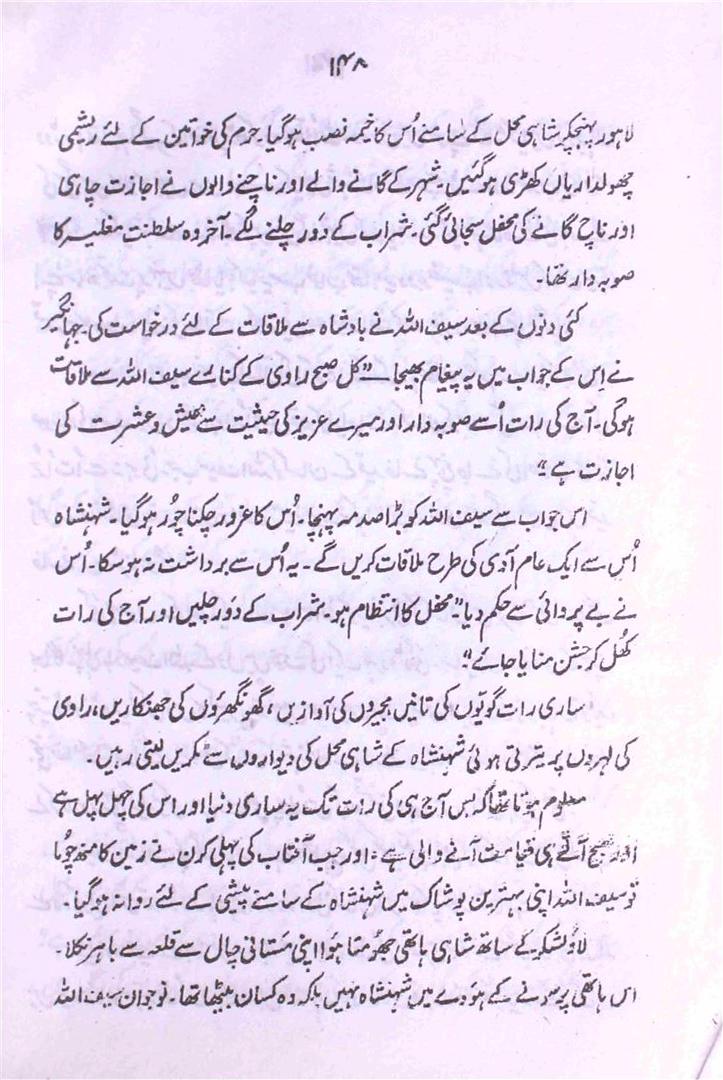 ۱۴۸
لاہور پہنچکر شاہی محل کے سامنے اُس کا خیمہ نصب ہوگیا۔ حرم کی خواتین کے لئے ریشمی
چھولداریاں کھڑی ہوگئیں۔ شہر کے گانے والے اور ناچنے والوں نے اجازت چاہی
اور ناچ گانے کی محفل سجائی گئی۔ شراب کے دَور چلنے لگے۔ آخر وہ سلطنت مغلیہ کا
صوبہ دار تھا۔
کئی دنوں کے بعد سیف اللہ نے بادشاہ سے ملاقات کے لئے درخواست کی۔ جہانگیر
نے اِس کے جواب میں یہ پیغام بھیجا — "کل صبح راوی کے کنارے سیف اللہ سے ملاقات
ہوگی۔ آج کی رات اُسے صوبہ دار اور میرے عزیز کی حیثیت سے عیش و عشرت کی
اجازت ہے"
اس جواب سے سیف اللہ کو بڑا صدمہ پہنچا۔ اُس کا غرور چکنا چُور ہوگیا۔ شہنشاہ
اُس سے ایک عام آدمی کی طرح ملاقات کریں گے۔ یہ اُس سے برداشت نہ ہوسکا۔ اُس
نے بے پروائی سے حکم دیا "محفل کا انتظام ہو۔ شراب کے دَور چلیں اور آج کی رات
کھُل کر جشن منایا جائے"۔
ساری رات گویّوں کی تانیں مجیروں کی آوازیں، گھونگھروُں کی جھنکاریں، راوی
کی لہروں پر تیرتی ہوئی شہنشاہ کے شاہی محل کی دیواروں سے ٹکریں لیتی رہیں۔
معلوم ہوتا تھا کہ بس آج ہی کی رات تک یہ ساری دنیا اور اس کی چہل پہل ہے
اور صبح آتے ہی قیامت آنے والی ہے۔ اور جب آفتاب کی پہلی کرن نے زمین کا منھ چُوما
تو سیف اللہ اپنی بہترین پوشاک میں شہنشاہ کے سامنے پیشی کے لئے روانہ ہوگیا۔
لاؤ لشکر کے ساتھ شاہی ہاتھی جھُومتا ہوا اپنی مَستانی چال سے قلعہ سے باہر نکلا۔
اس ہاتھی پر سونے کے ہَودے میں شہنشاہ نہیں بلکہ وہ کسان بیٹھا تھا۔ نوجوان سیف اللہ